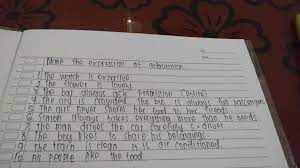 Make the expression of admiration
1. The watch is expensive
2. The flower is lovely
3. The boy always ask permission (polite)
4. The city is crowded. The bus is always full passengers
5. The girl never shares her food to her friends
6. Simon always takes everything more than he needs
7. The man drives the car carefully = driver
8. The boy likes to share his belongings
9. The train is clean it is air conditioned
10. All people like the food